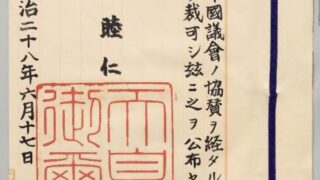 國議會ノ協賛ヲ経タル
裁可シ茲ニ之ヲ公布セ
睦仁
天皇
御璽
治二十八年六月十七日